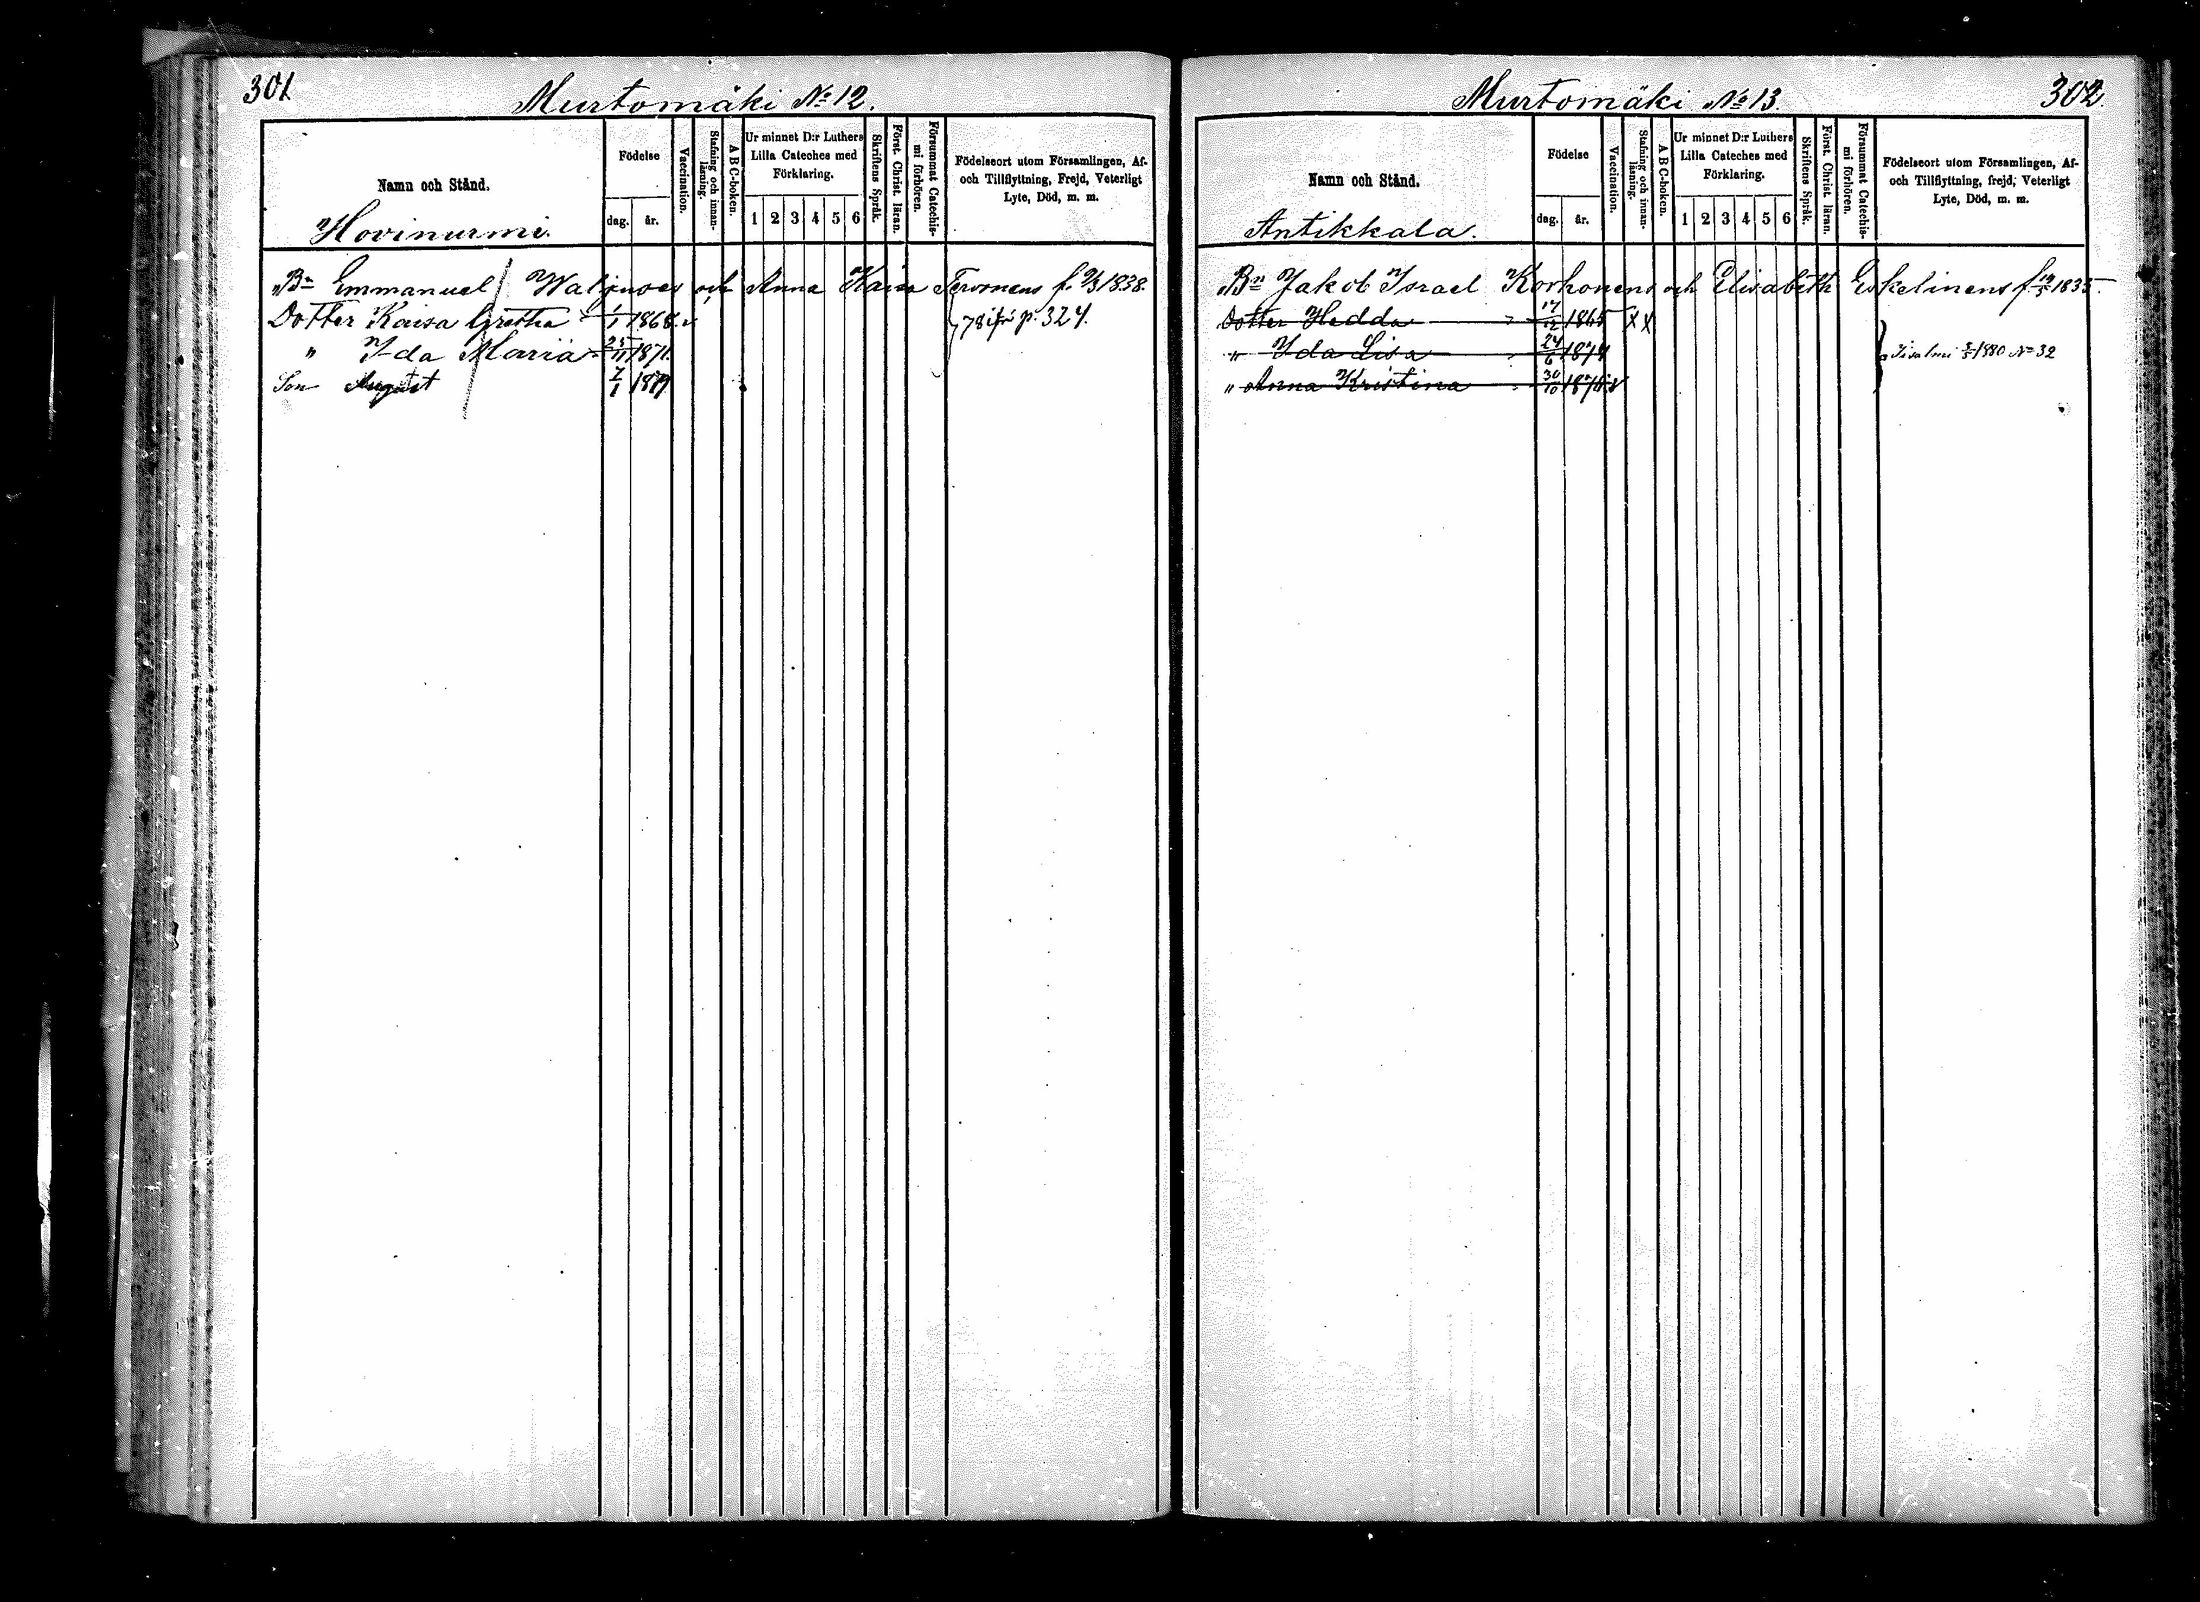 301
Murtomäki No 12.
Namn och Stånd.
Hovinurmi.
Födelse
dag.
år.
Vaccination.
Stafning och innan-
läsning.
A B C-boken.
Ur minnet D:r Luthers
Lilla Cateches med
Förklaring.
1 2 3 4 5 6
Skriftens Språk.
Först. Christ. läran.
Försummat Catechis-
mi förhören.
Födelseort utom Församlingen, Af-
och Tillflyttning, Frejd, Veterligt
Lyte, Död, m. m.
Bn Emmanuel och Anna Kaisa Tervonens f. 1838.
Dotter Kaisa Gretha 1/1 1868.
" Ida Maria 25/11 1871.
Son August 7/1 1879
78 ifr. p. 324.
302.
Murtomäki No 13.
Namn och Stånd.
Antikkala.
Födelse
dag.
år.
Vaccination.
Stafning och innan-
läsning.
A B C-boken.
Ur minnet D:r Luthers
Lilla Cateches med
Förklaring.
1 2 3 4 5 6
Skriftens Språk.
Först. Christ. läran.
Försummat Catechis-
mi förhören.
Födelseort utom Församlingen, Af-
och Tillflyttning, frejd, Veterligt
Lyte, Död, m. m.
Bn Jakob Israel Korhonens och Elisabeth Eskelinens f. 1835.
Dotter Hedda 17/12 1865 x x
" Ida Lisa 24/6 1874
" Anna Kristina 30/10 1876
Iisalmi 1880 No 32